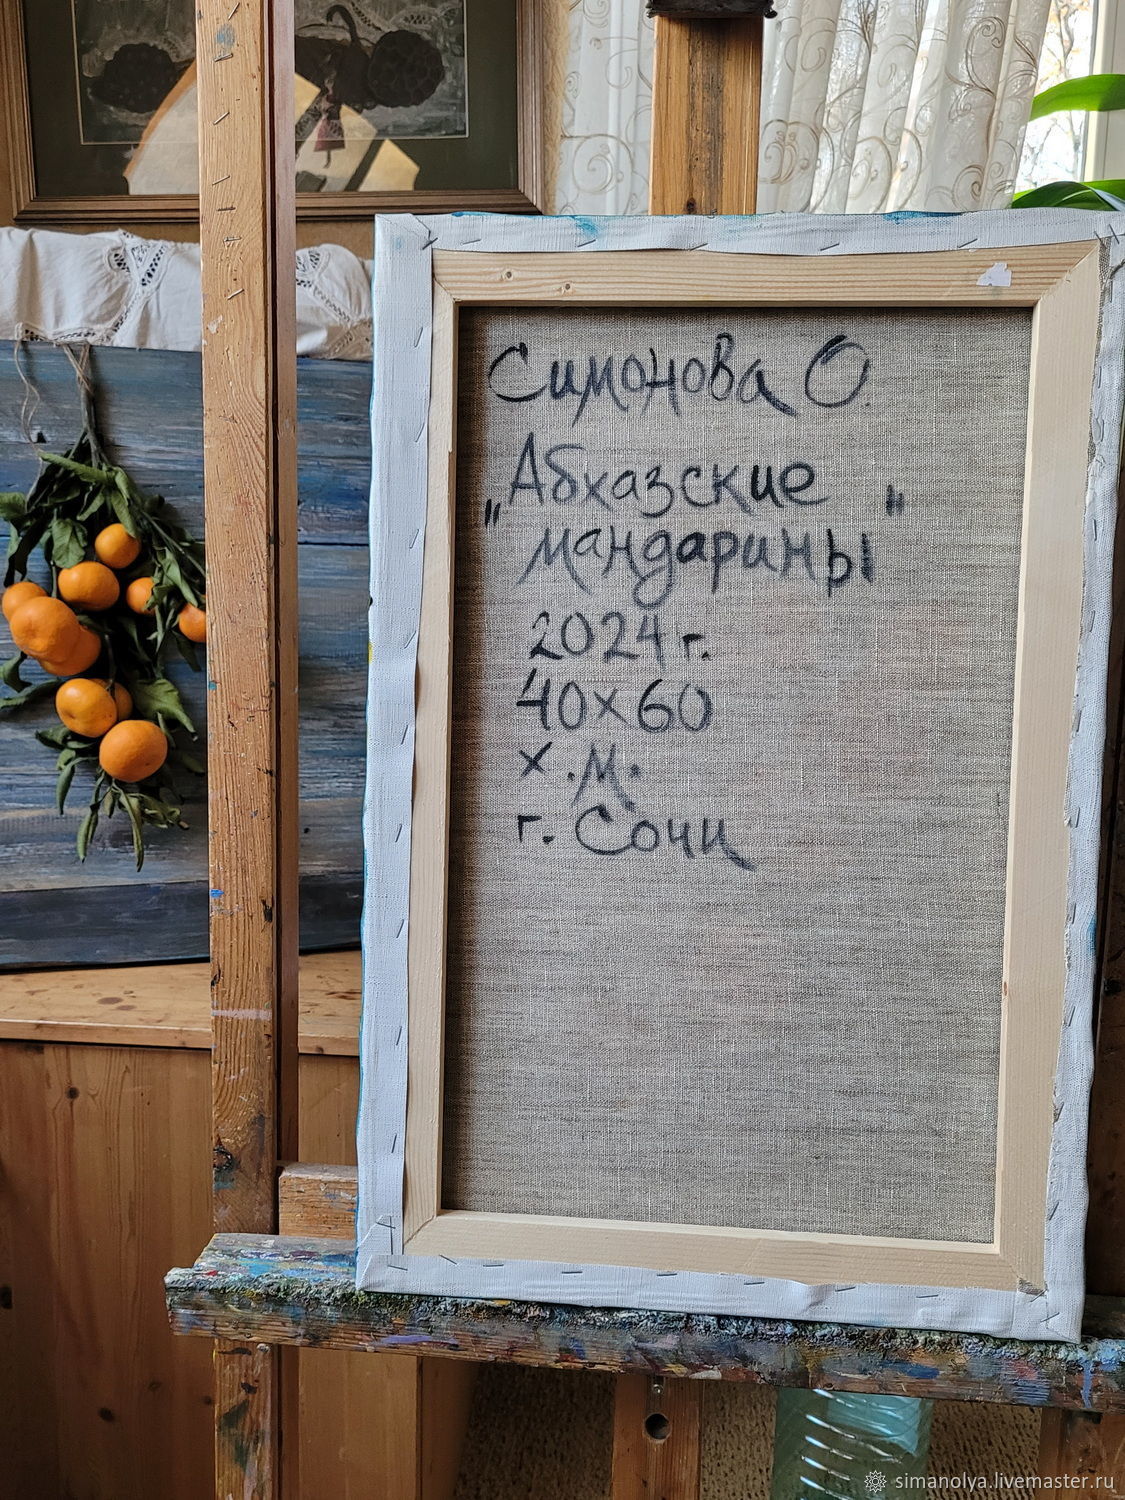 Симонова О.
„Абхазские
мандарины"
2024 г.
40х60
х.м.
г. Сочи
simanolya.livemaster.ru